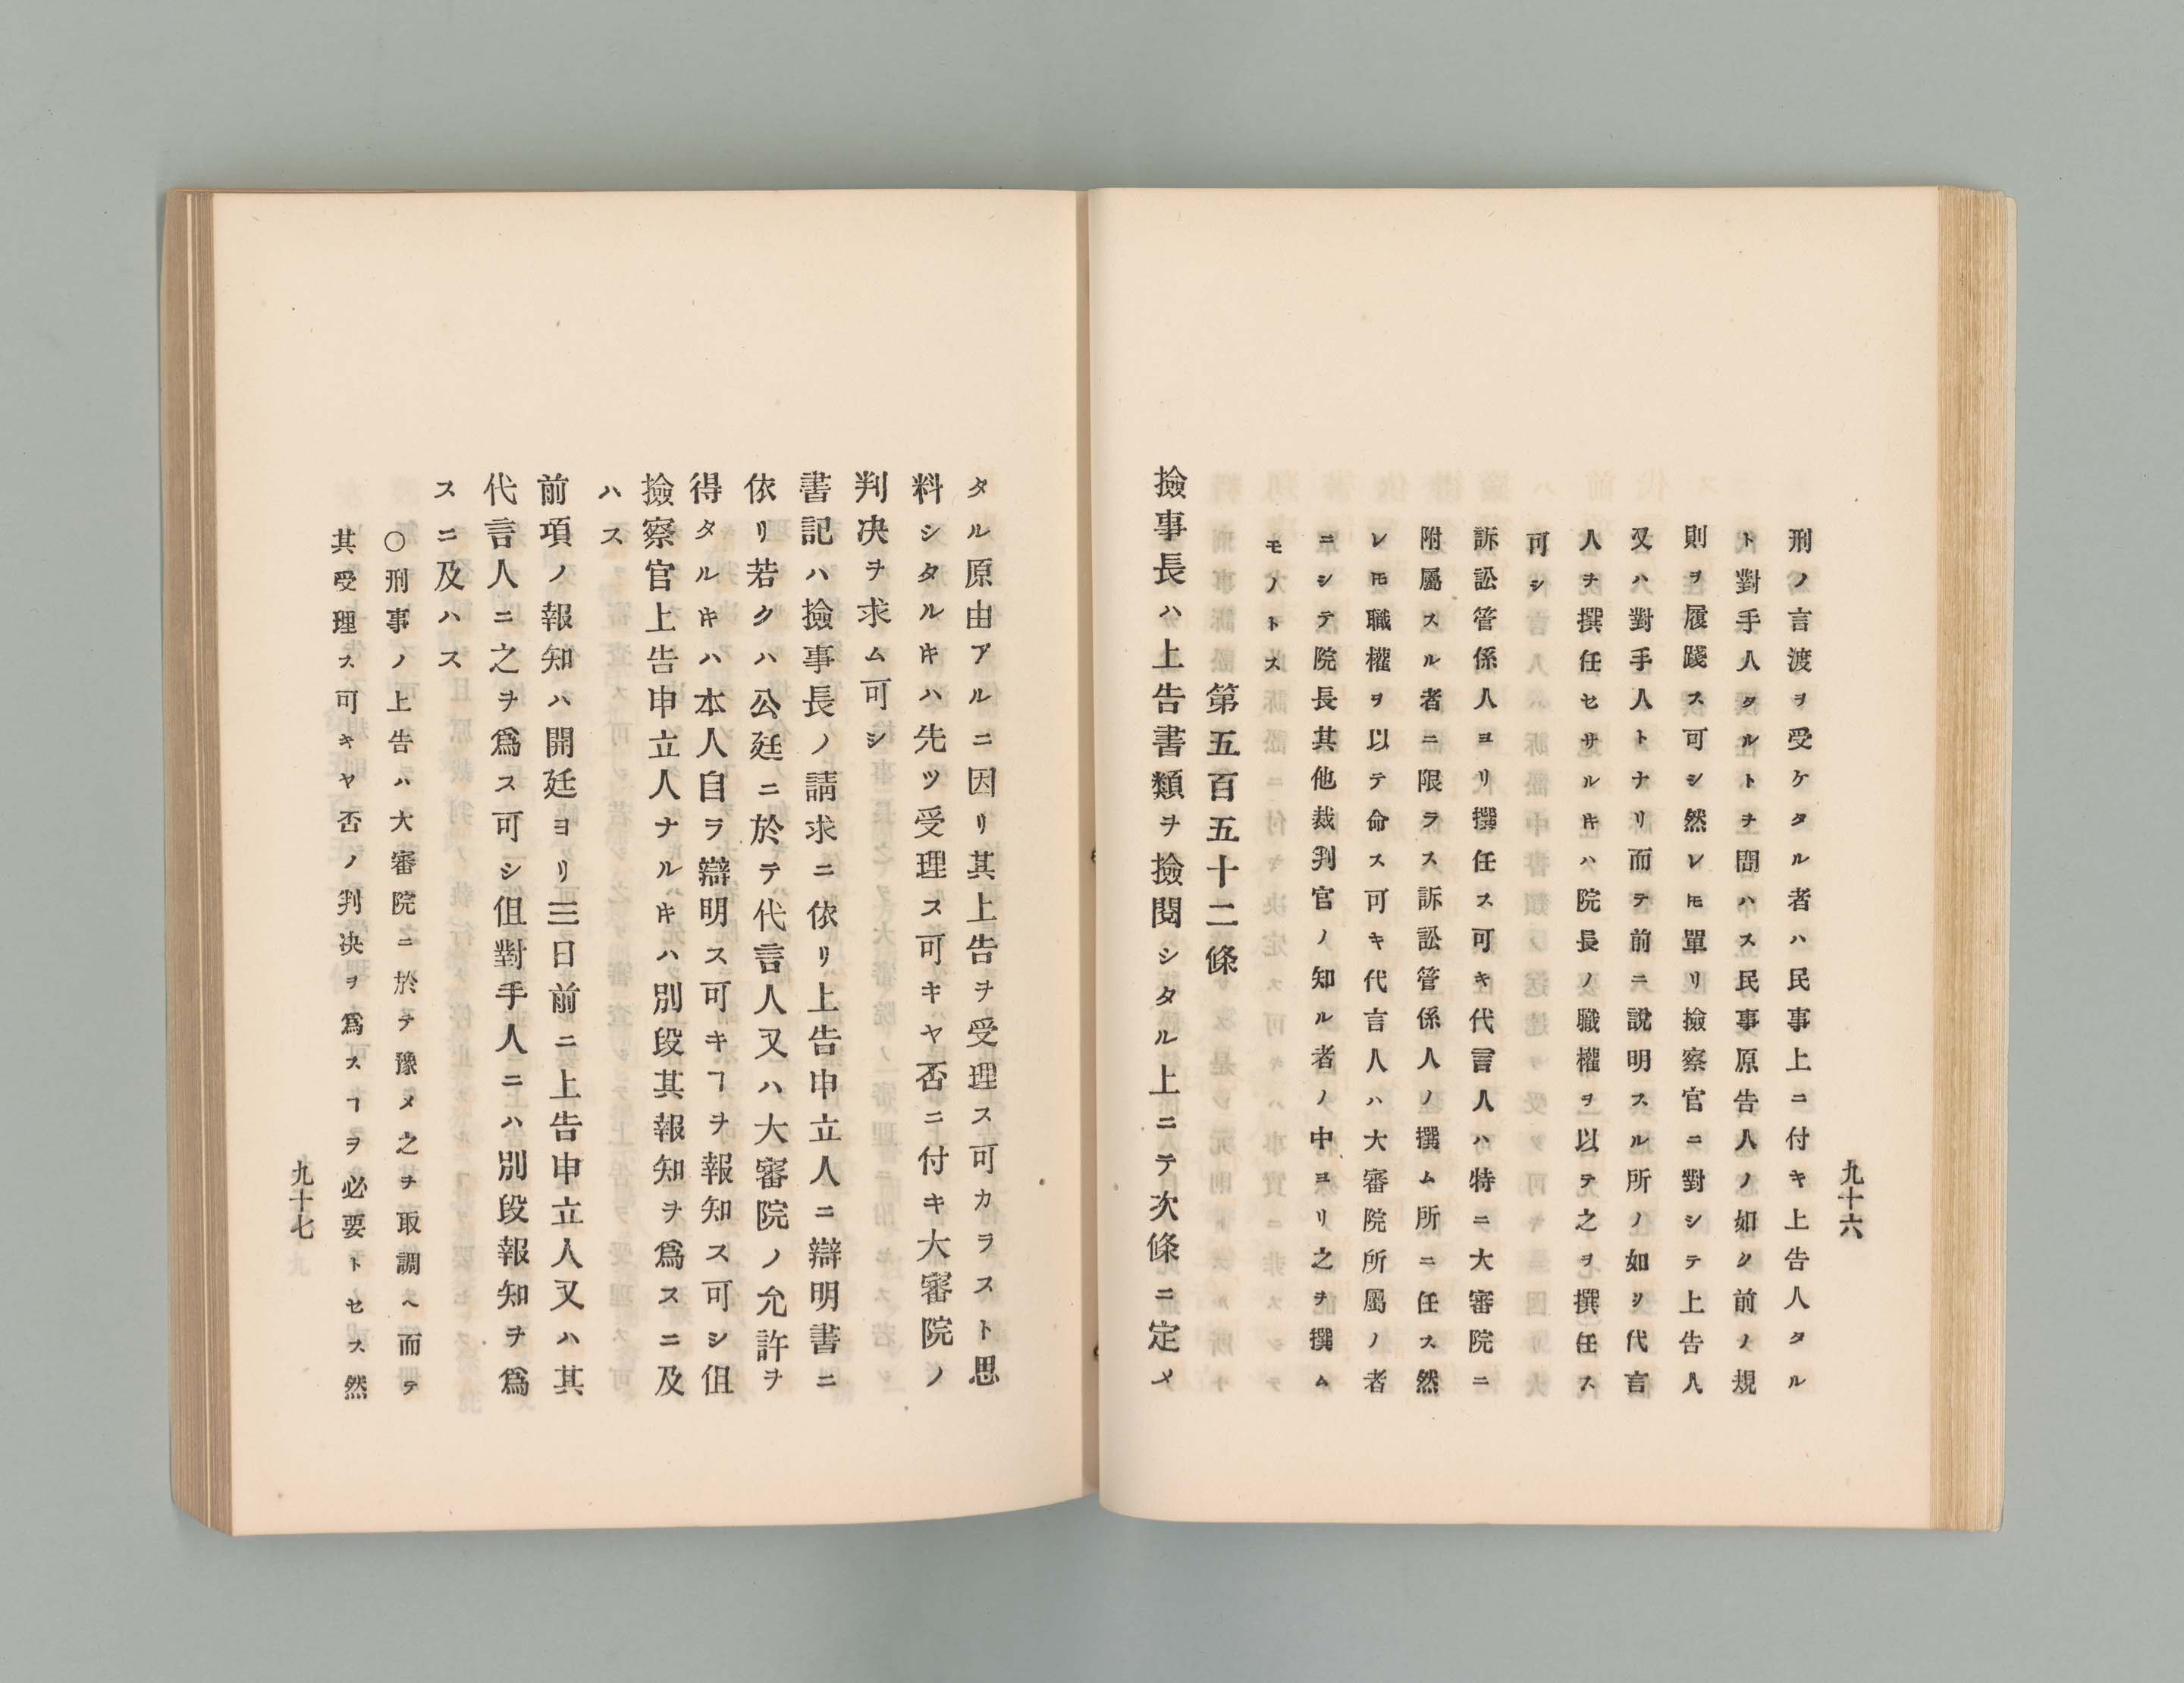 九十六
刑ノ言渡ヲ受ケタル者ハ民事上ニ付キ上告人タル
ト對手人タルトヲ問ハス民事原告人ノ如ク前ノ規
則ヲ履踐ス可シ然レ𪜈單リ撿察官ニ對シテ上告人
又ハ對手人トナリ而テ前ニ說明スル所ノ如ク代言
人ヲ撰任セサルキハ院長ノ職權ヲ以テ之ヲ撰任ス
可シ
訴訟管係人ヨリ撰任ス可キ代言人ハ特ニ大審院ニ
附屬スル者ニ限ラス訴訟管係人ノ撰ム所ニ任ス然
レ𪜈職權ヲ以テ命ス可キ代言人ハ大審院所屬ノ者
ニシテ院長其他裁判官ノ知ル者ノ中ヨリ之ヲ撰ム
モノトス
第五百五十二條
撿事長ハ上告書類ヲ撿閱シタル上ニテ次條ニ定メ
タル原由アルニ因リ其上告ヲ受理ス可カラスト思
料シタルキハ先ツ受理ス可キヤ否ニ付キ大審院ノ
判决ヲ求ム可シ
書記ハ撿事長ノ請求ニ依リ上告申立人ニ辯明書ニ
依リ若クハ公廷ニ於テ代言人又ハ大審院ノ允許ヲ
得タルキハ本人自ラ辯明ス可キヿヲ報知ス可シ伹
撿察官上告申立人ナルキハ別段其報知ヲ爲スニ及
ハス
前項ノ報知ハ開廷ヨリ三日前ニ上告申立人又ハ其
代言人ニ之ヲ爲ス可シ伹對手人ニハ別段報知ヲ爲
スニ及ハス
〇刑事ノ上告ハ大審院ニ於テ豫メ之ヲ取調ヘ而テ
其受理ス可キヤ否ノ判决ヲ爲スヿヲ必要トセス然
九十七